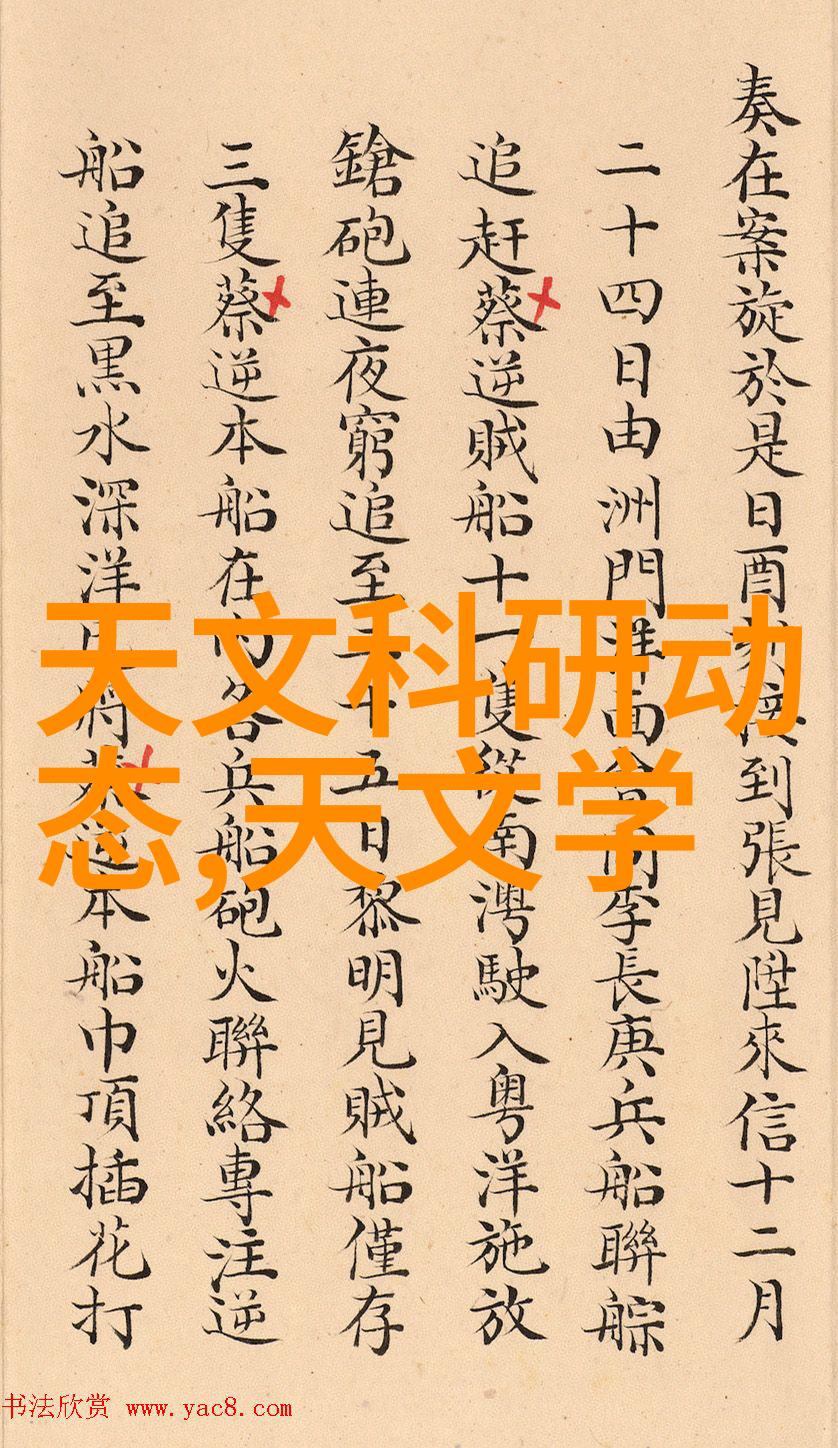 奏在案旋於是日酉到張見陞來信十二月
二十四日由洲門面李長庚兵船聯䑸
追赶蔡逆賊船十一隻從南灣駛入粤洋施放
鎗砲連夜窮追至二十五日黎明見賊船僅存
三隻蔡逆本船在内各兵船砲火聯絡專注逆
船追至黒水深洋將蔡逆本船巾頂插花打
天文科研动
态,天文学
书法欣赏 www.yac8.com